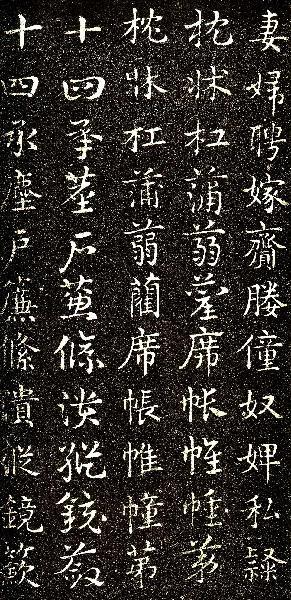 妻婦聘嫁齎媵僮奴婢私隸
枕牀杠蒲蒻藺席帳帷幢第
枕牀杠蒲蒻藺席帳帷幢第
十四承塵戶簾絛繢縱鏡籢
十四承塵戶簾絛繢縱鏡籢